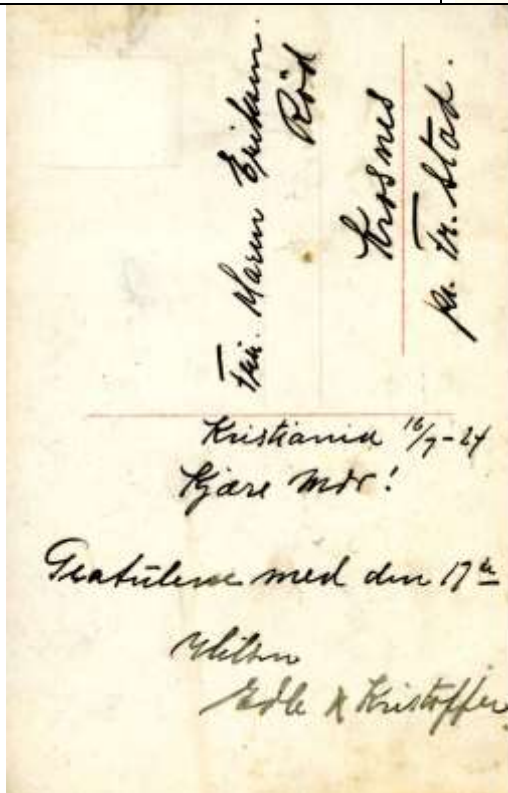 Fru. Maren Eriksen.
Röd
Krosnes
pr. Fr. Stad.
Kristiania 16/7-24
Kjære Mor!
Gratulere med den 17de
Hilsen
Edle & Kristoffer